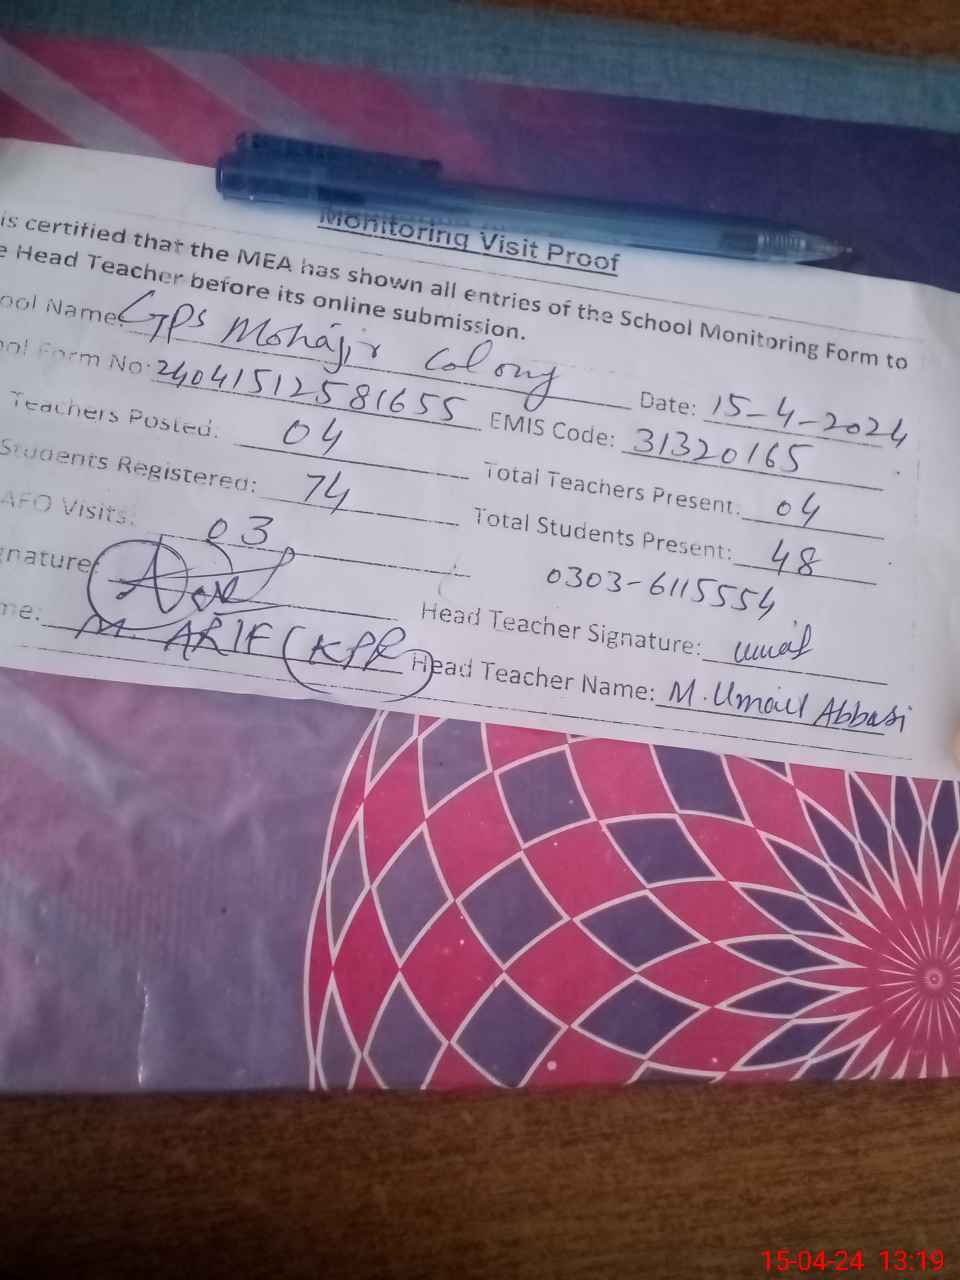 Monitoring Visit Proof
is certified that the MEA has shown all entries of the School Monitoring Form to
e Head Teacher before its online submission.
ool Name: GPS Mohajir Colony Date: 15-4-2024
ol Form No: 24041512581655 EMIS Code: 31320165
Teachers Posted: 04 Total Teachers Present: 04
Students Registered: 74 Total Students Present: 48
AFO Visits: 03 0303-6115554
gnature Head Teacher Signature:
me: M. ARIF (KPR) Head Teacher Name: M. Umair Abbasi
15-04-24 13:19